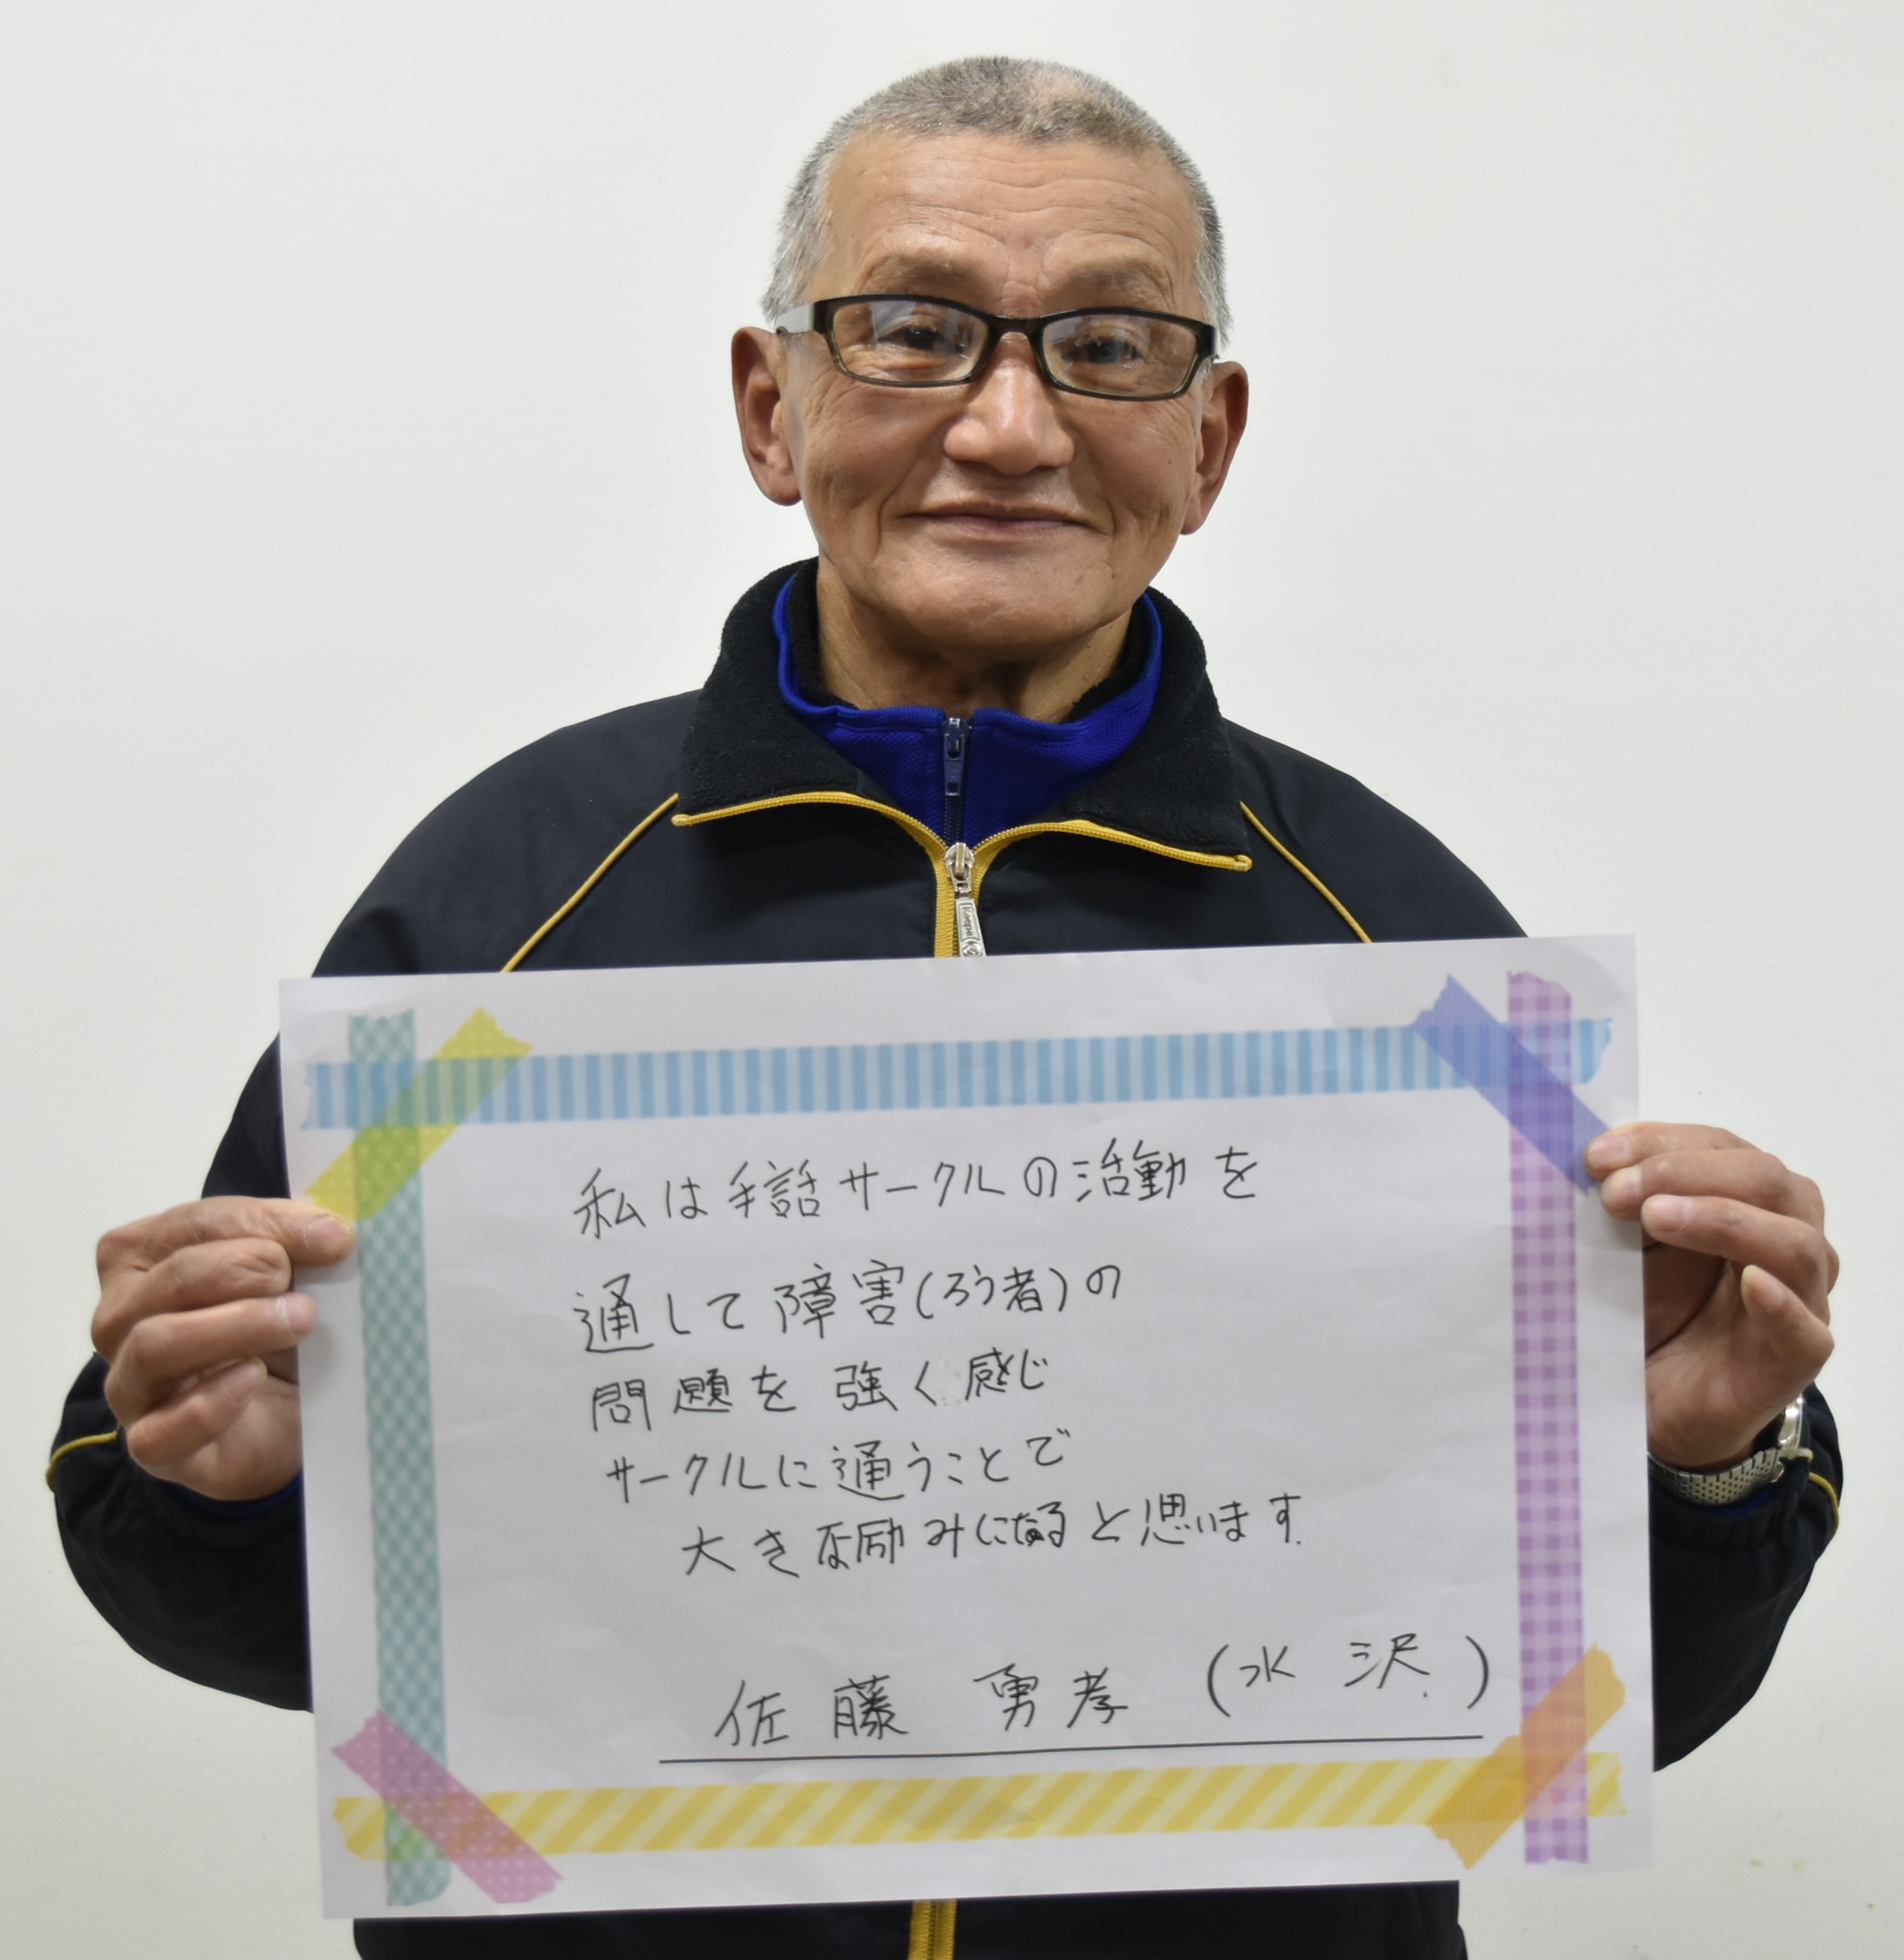 Kappa
私は手話サークルの活動を
通して障害(ろう者)の
問題を強く感じ
サークルに通うことで
大きな励みになると思います.
佐藤 勇孝 (水沢.)